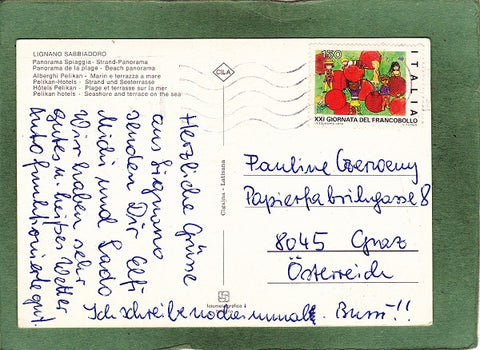 LIGNANO SABBIADORO
Panorama Spiaggia - Strand-Panorama
Panorama de la plage - Beach panorama
Alberghi Pelikan - Marin e terrazza a mare
Pelikan-Hotels - Strand und Seeterrasse
Hôtels Pelikan - Plage et terrasse sur la mer
Pelikan hotels - Seashore and terrace on the sea
CILA
150
ITALIA
XXI GIORNATA DEL FRANCOBOLLO
Herzliche Grüsse
aus Lignano
senden Dir Elfi
Michi und Lado
Wir haben sehr
gutes u. heißes Wetter
Auto funktionierte gut.
Ich schreibe noch einmal. Bussi!!
Pauline Czerweny
Papierfabrikgasse 8
8045 Graz
Österreich
Cigaina - Latisana